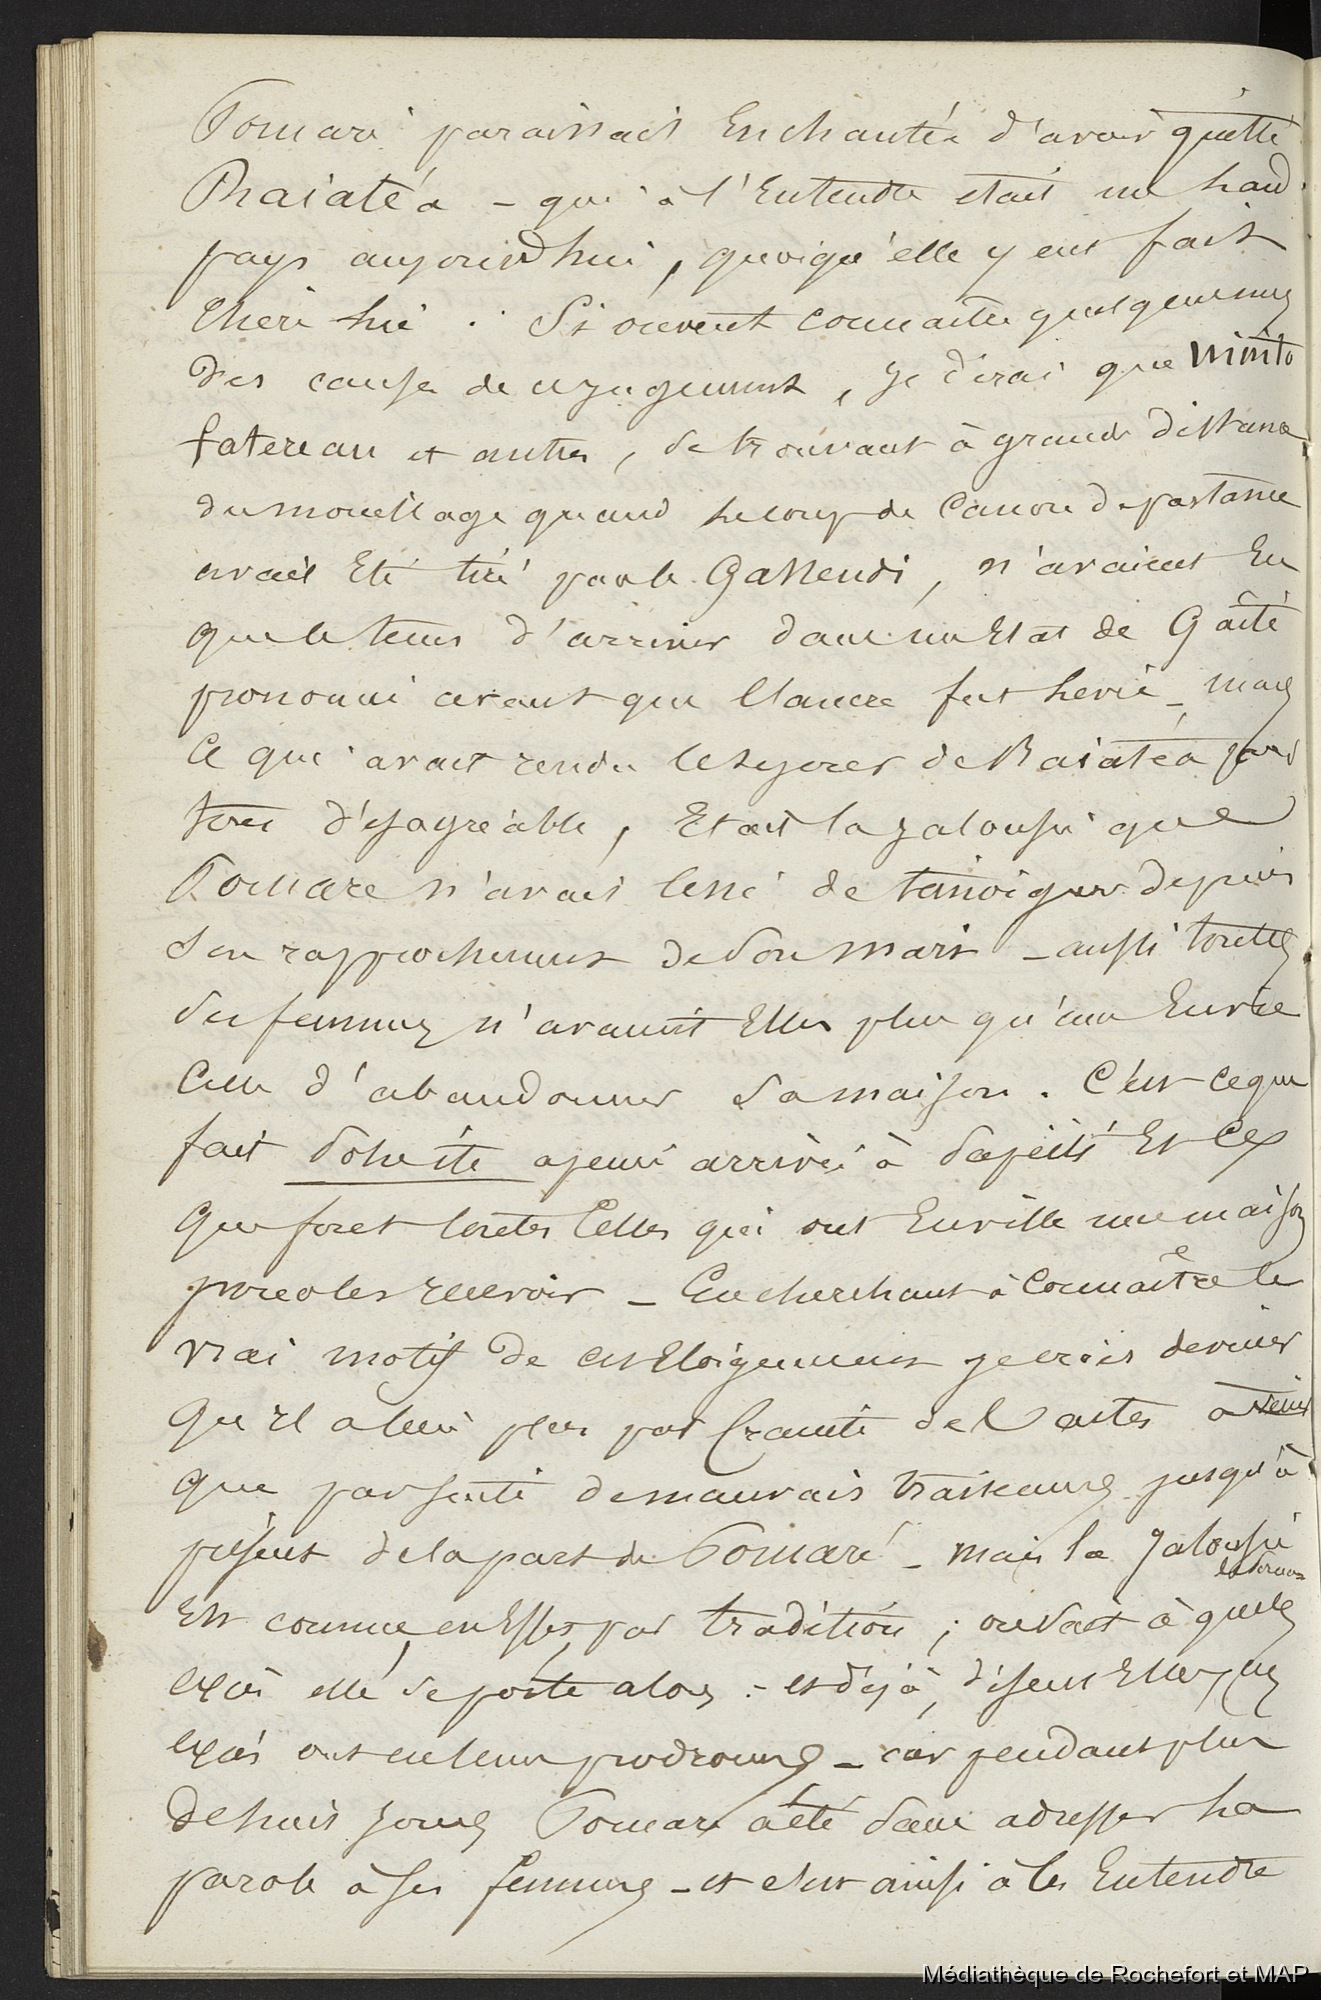 Pomaré paraissait Enchantée d'avoir quitté
Raiatéa – qui à l'Entendre etait un
pays aujourd'hui, quoiqu'elle y eut fait
. Si on veut connaitre quelques unes
des causes de ce jugement, je dirai que Minito
fatereau et autres, se trouvant à grande distance
du mouillage quand le coup de Canon de partance
avait Eté tiré par le Gassendi, n'avaient Eu
que le tems d'arriver dans un Etat de Gaîté
prononcé avant que l'ancre fut levée – mais
Ce qui avait rendu le séjour de Raiatéa pour
tous désagréable, Etait la jalousie que
Pomare n'avait cessé de témoigner depuis
son rapprochement de son mari – aussi toutes
ses femmes n'avaient Elles plus qu'une Envie
Celle d'abandonner sa maison. C'est ce que
fait a peine arrivée à Papéiti Et Ce
que font toutes Celles qui ont En ville une maison
pour les recevoir – En cherchant à Connaître le
vrai motif de cet Eloignement je crois deviner
qu'il a lieu plus par Crainte de l'
que par suite de mauvais traitemens jusqu'à
présent de la part de Pomaré – mais la Jalousie
Est connue, en Effet, par tradition ; on sait à quels
excès elle se porte alors : et déjà, disent Elles, ces
excès ont eu leurs prodromes – car pendant plus
de huit jours Pomare a été sans adresser la
parole à ses femmes – et c'est ainsi à les Entendre
Médiathèque de Rochefort et MAP